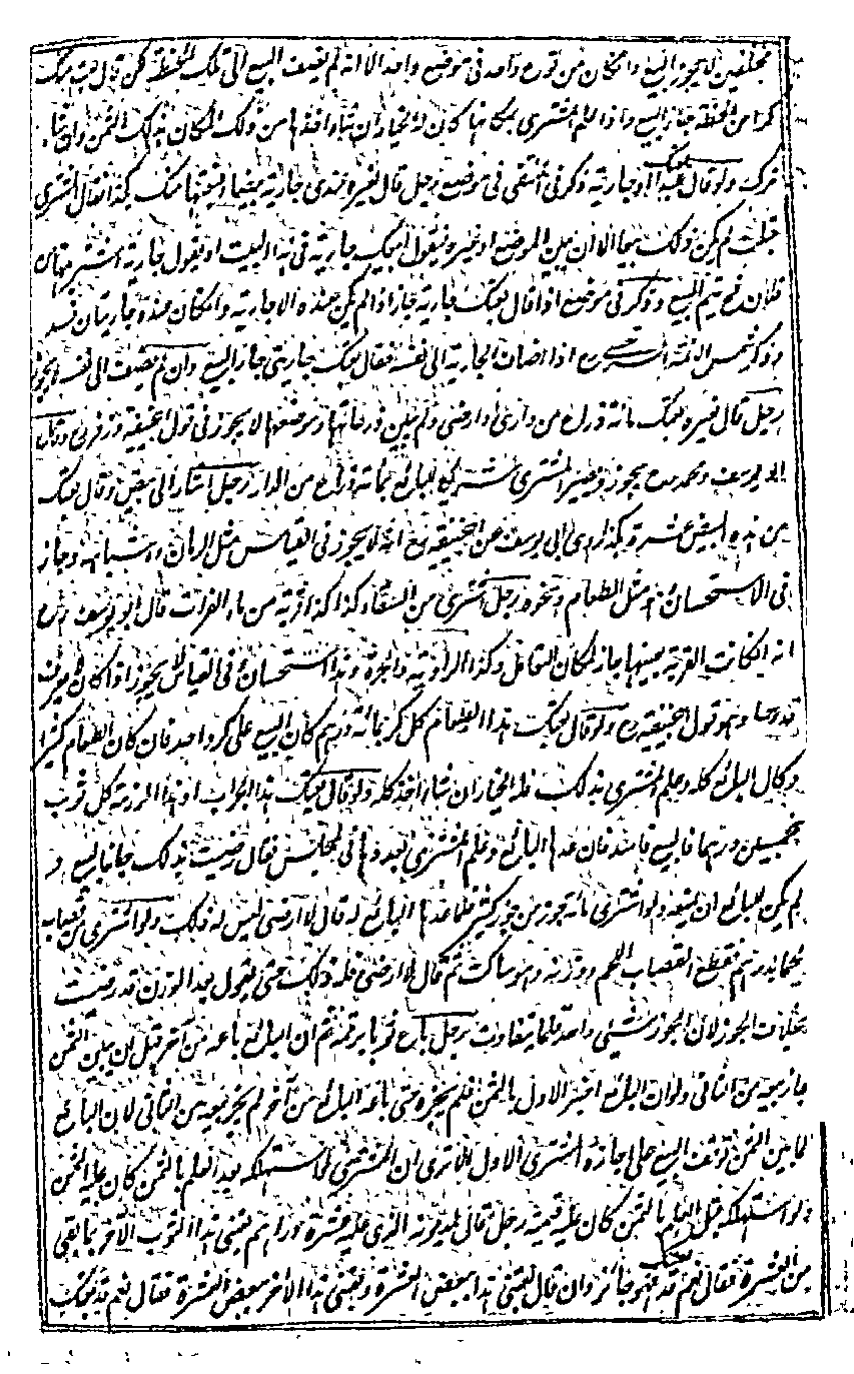 مختلفين لا يجوز البيع وان كان من نوع واحد في موضع واحد الا انه لم يضف البيع الى تلك الحنطة لكن قال بعت منك
كرا من الحنطة جاز البيع واذا علم المشتري بمكانها كان له الخيار ان شاء اخذها من ذلك المكان بذلك الثمن وان شاء
ترك ولو قال بعتك عبدا او جارية ذكر في المنتقى في موضع رجل قال لغيره عندي جارية بيضاء بعتها منك بكذا فقال المشتري
قبلت لم يكن ذلك بيعا الا ان يبين الموضع او غيره فيقول ابيعك جارية في هذا البيت او يقول جارية اشتريتها من
فلان فح يتم البيع وذكر في موضع اذا قال بعتك جارية جاز اذا لم يكن عنده الا جارية وان كان عنده جاريتان فسد
وذكر شمس الائمة السرخسي رح اذا اضاف الجارية الى نفسه فقال بعتك جاريتي جاز البيع وان لم يضف الى نفسه لا يجوز
رجل قال لغيره بعتك مائة ذراع من داري او ارضي ولم يبين ذرعانها وموضعها لا يجوز في قول ابي حنيفة وزفر رح وقال
ابو يوسف ومحمد رح يجوز ويصير المشتري شريكا للبائع بمائة ذراع من الدار رجل اشار الى بيض وقال بعتك
من هذه البيض عشرة بكذا روى ابي يوسف عن ابي حنيفة رح انه لا يجوز في القياس مثل الرمان واشباهه وجاز
في الاستحسان هذا مثل الطعام ونحوه رجل اشترى من السقاء كذا كذا قربة من ماء الفرات قال ابو يوسف رح
انه ان كانت القربة بعينها جاز لمكان التعامل وكذا الراوية والجرة وهذا استحسان وفي القياس لا يجوز اذا كان لا يعرف
قدرها وهو قول ابي حنيفة رح ولو قال بعتك هذا الطعام كل كر بمائة درهم كان البيع على كر واحد فان كان الطعام كثيرا
وكال البائع كله وعلم المشتري بذلك فله الخيار ان شاء اخذ كله ولو قال بعتك هذا الجراب او هذا الرزمة كل ثوب
بخمسين درهما فالبيع فاسد فان عدها البائع وعلم المشتري العدد في المجلس فقال رضيت بذلك جاز البيع و
لم يكن للبائع ان يمنعه ولو اشترى مائة جوز من جوز كثير فلما عدها البائع له قال لا ارضى ليس له ذلك ولو اشترى من قصاب
لحما بدرهم فقطع القصاب اللحم ووزنه وهو ساكت ثم قال لا ارضى فله ذلك حتى يقول بعد الوزن قد رضيت
بخلاف الجوز لان الجوز شيء واحد قلما يتفاوت رجل باع ثوبا برقمه ثم ان البائع باعه من آخر قبل ان يبين الثمن
جاز بيعه من الثاني ولو ان البائع اخبر الاول بالثمن فلم يجزه حتى باعه البائع من آخر لم يجز بيعه من الثاني لان البائع
لما بين الثمن توقف البيع على اجازة المشتري الاول الا ترى ان المشتري لو استهلكه بعد العلم بالثمن كان عليه الثمن
ولو استهلكه قبل العلم بالثمن كان عليه قيمته رجل قال لمديونه الذي عليه عشرة دراهم بعني هذا الثوب الآخر بما بقي
من العشرة فقال نعم قد بعتك فهو جائز وان قال بعني هذا ببعض العشرة وبعني هذا الآخر ببعض العشرة فقال نعم قد بعتك